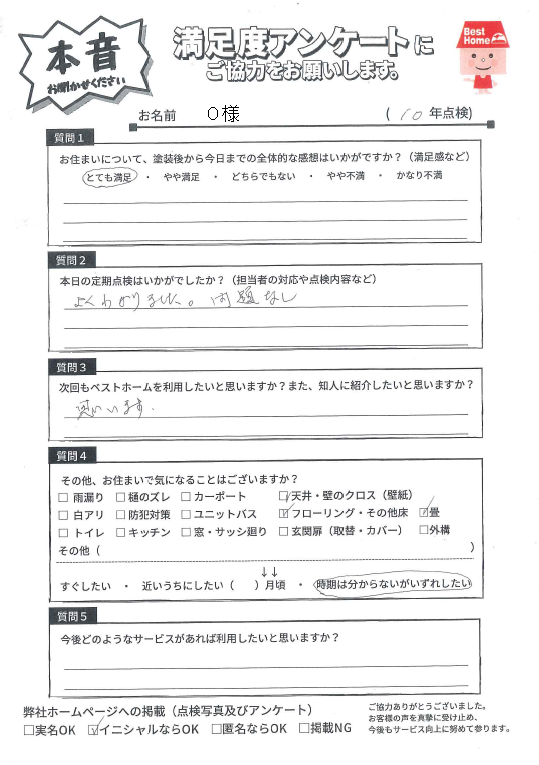 本音
お聞かせください
満足度アンケートに
ご協力をお願いします。
Best Home
お名前 O様 (10年点検)
質問1
お住まいについて、塗装後から今日までの全体的な感想はいかがですか？（満足感など）
とても満足 ・ やや満足 ・ どちらでもない ・ やや不満 ・ かなり不満
質問2
本日の定期点検はいかがでしたか？（担当者の対応や点検内容など）
よくわかりました。問題なし
質問3
次回もベストホームを利用したいと思いますか？また、知人に紹介したいと思いますか？
思います.
質問4
その他、お住まいで気になることはございますか？
□ 雨漏り □ 樋のズレ □ カーポート ☑天井・壁のクロス（壁紙）
□ 白アリ □ 防犯対策 □ ユニットバス ☑フローリング・その他床 ☑畳
□ トイレ □ キッチン □ 窓・サッシ廻り □ 玄関扉（取替・カバー） □外構
その他（ ）
↓↓
すぐしたい ・ 近いうちにしたい（ ）月頃 ・ 時期は分からないがいずれしたい
質問5
今後どのようなサービスがあれば利用したいと思いますか？
弊社ホームページへの掲載（点検写真及びアンケート）
□実名OK ☑イニシャルならOK □匿名ならOK □掲載NG
ご協力ありがとうございました。
お客様の声を真摯に受け止め、
今後もサービス向上に努めて参ります。